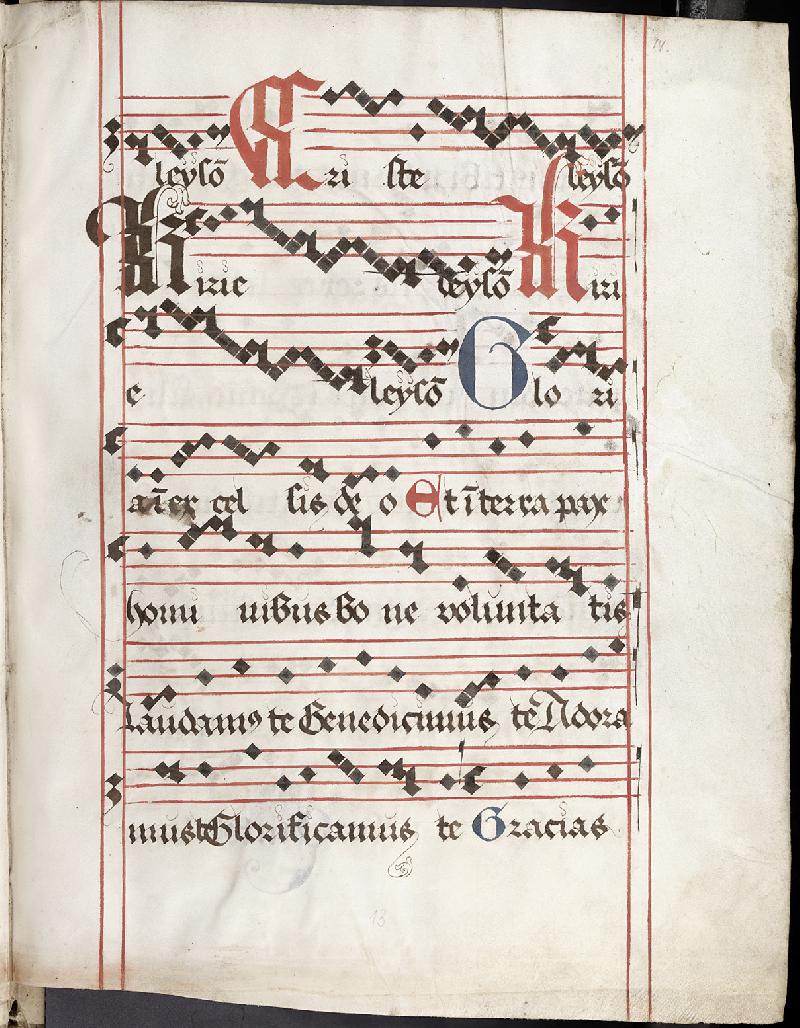 14.
leysō Cri ste leysō
Kirie leysō Kiri
e leysō Glo ri
a ī ex cel sis de o Et ī terra pax
homi nibus bo ne volunta tis
Laudamꝰ te Benedicimus te Adora
mus te Glorificamus te Gracias
13